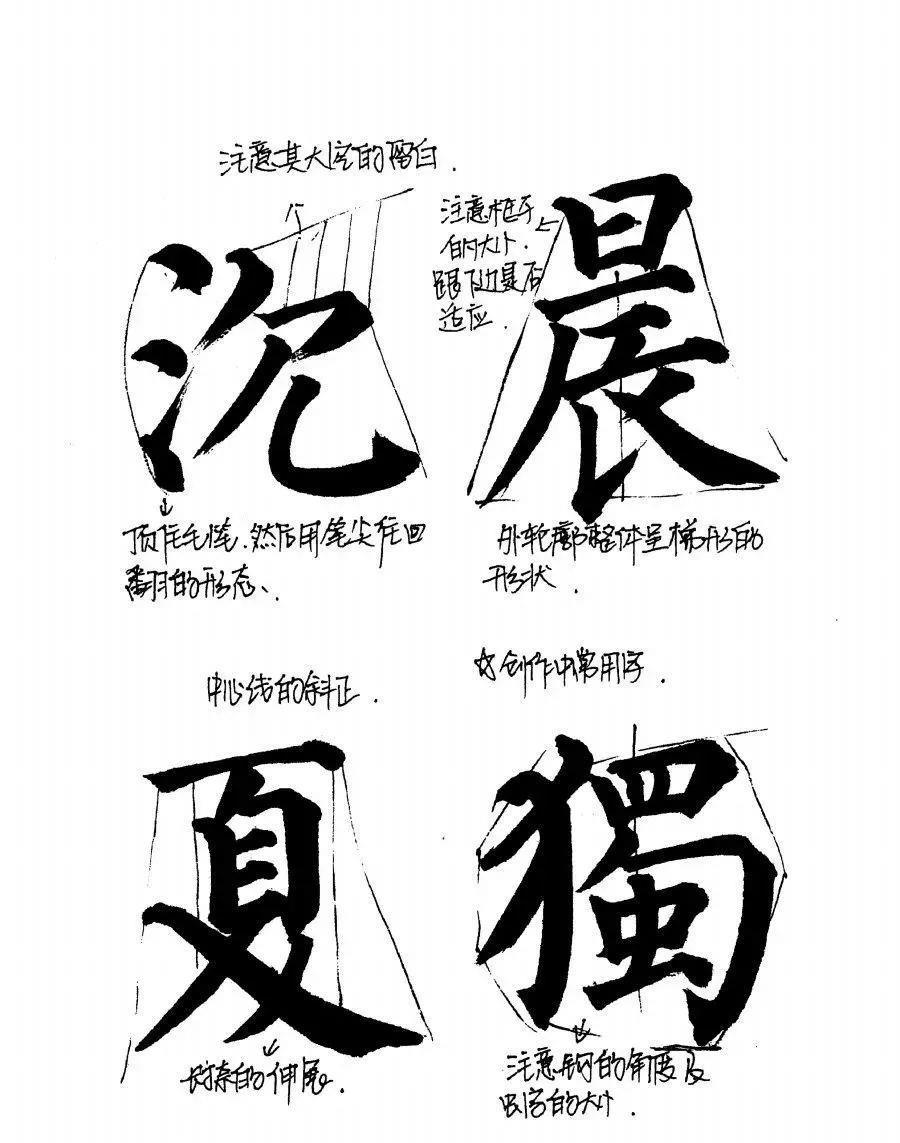 注意其大空的留白.
沉
顶住毛笔.然后用笔尖往回
翻的形态、
注意框子
的大小.
跟下边是否
适应.
晨
外轮廓整体呈梯形的
形状.
中心线的斜正.
夏
长捺的伸展.
☆创作中常用字
獨
注意钩的角度及
虫字的大小.